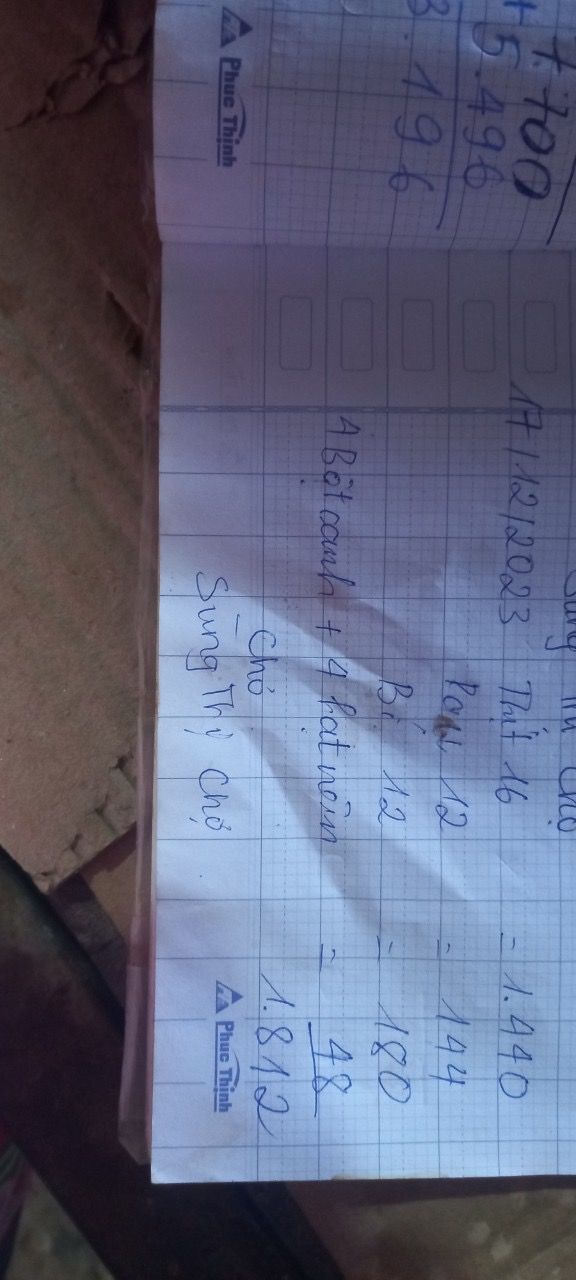 7.700
+ 5.496
3.196
Phuc Thịnh
Thị Chợ
17/12/2023 Thịt 16 = 1.440
12 = 144
Bí 12 = 180
4 Bột canh + 4 hạt nêm = 48
Chỏ 1.812
Sung Thị Chợ
Phuc Thịnh